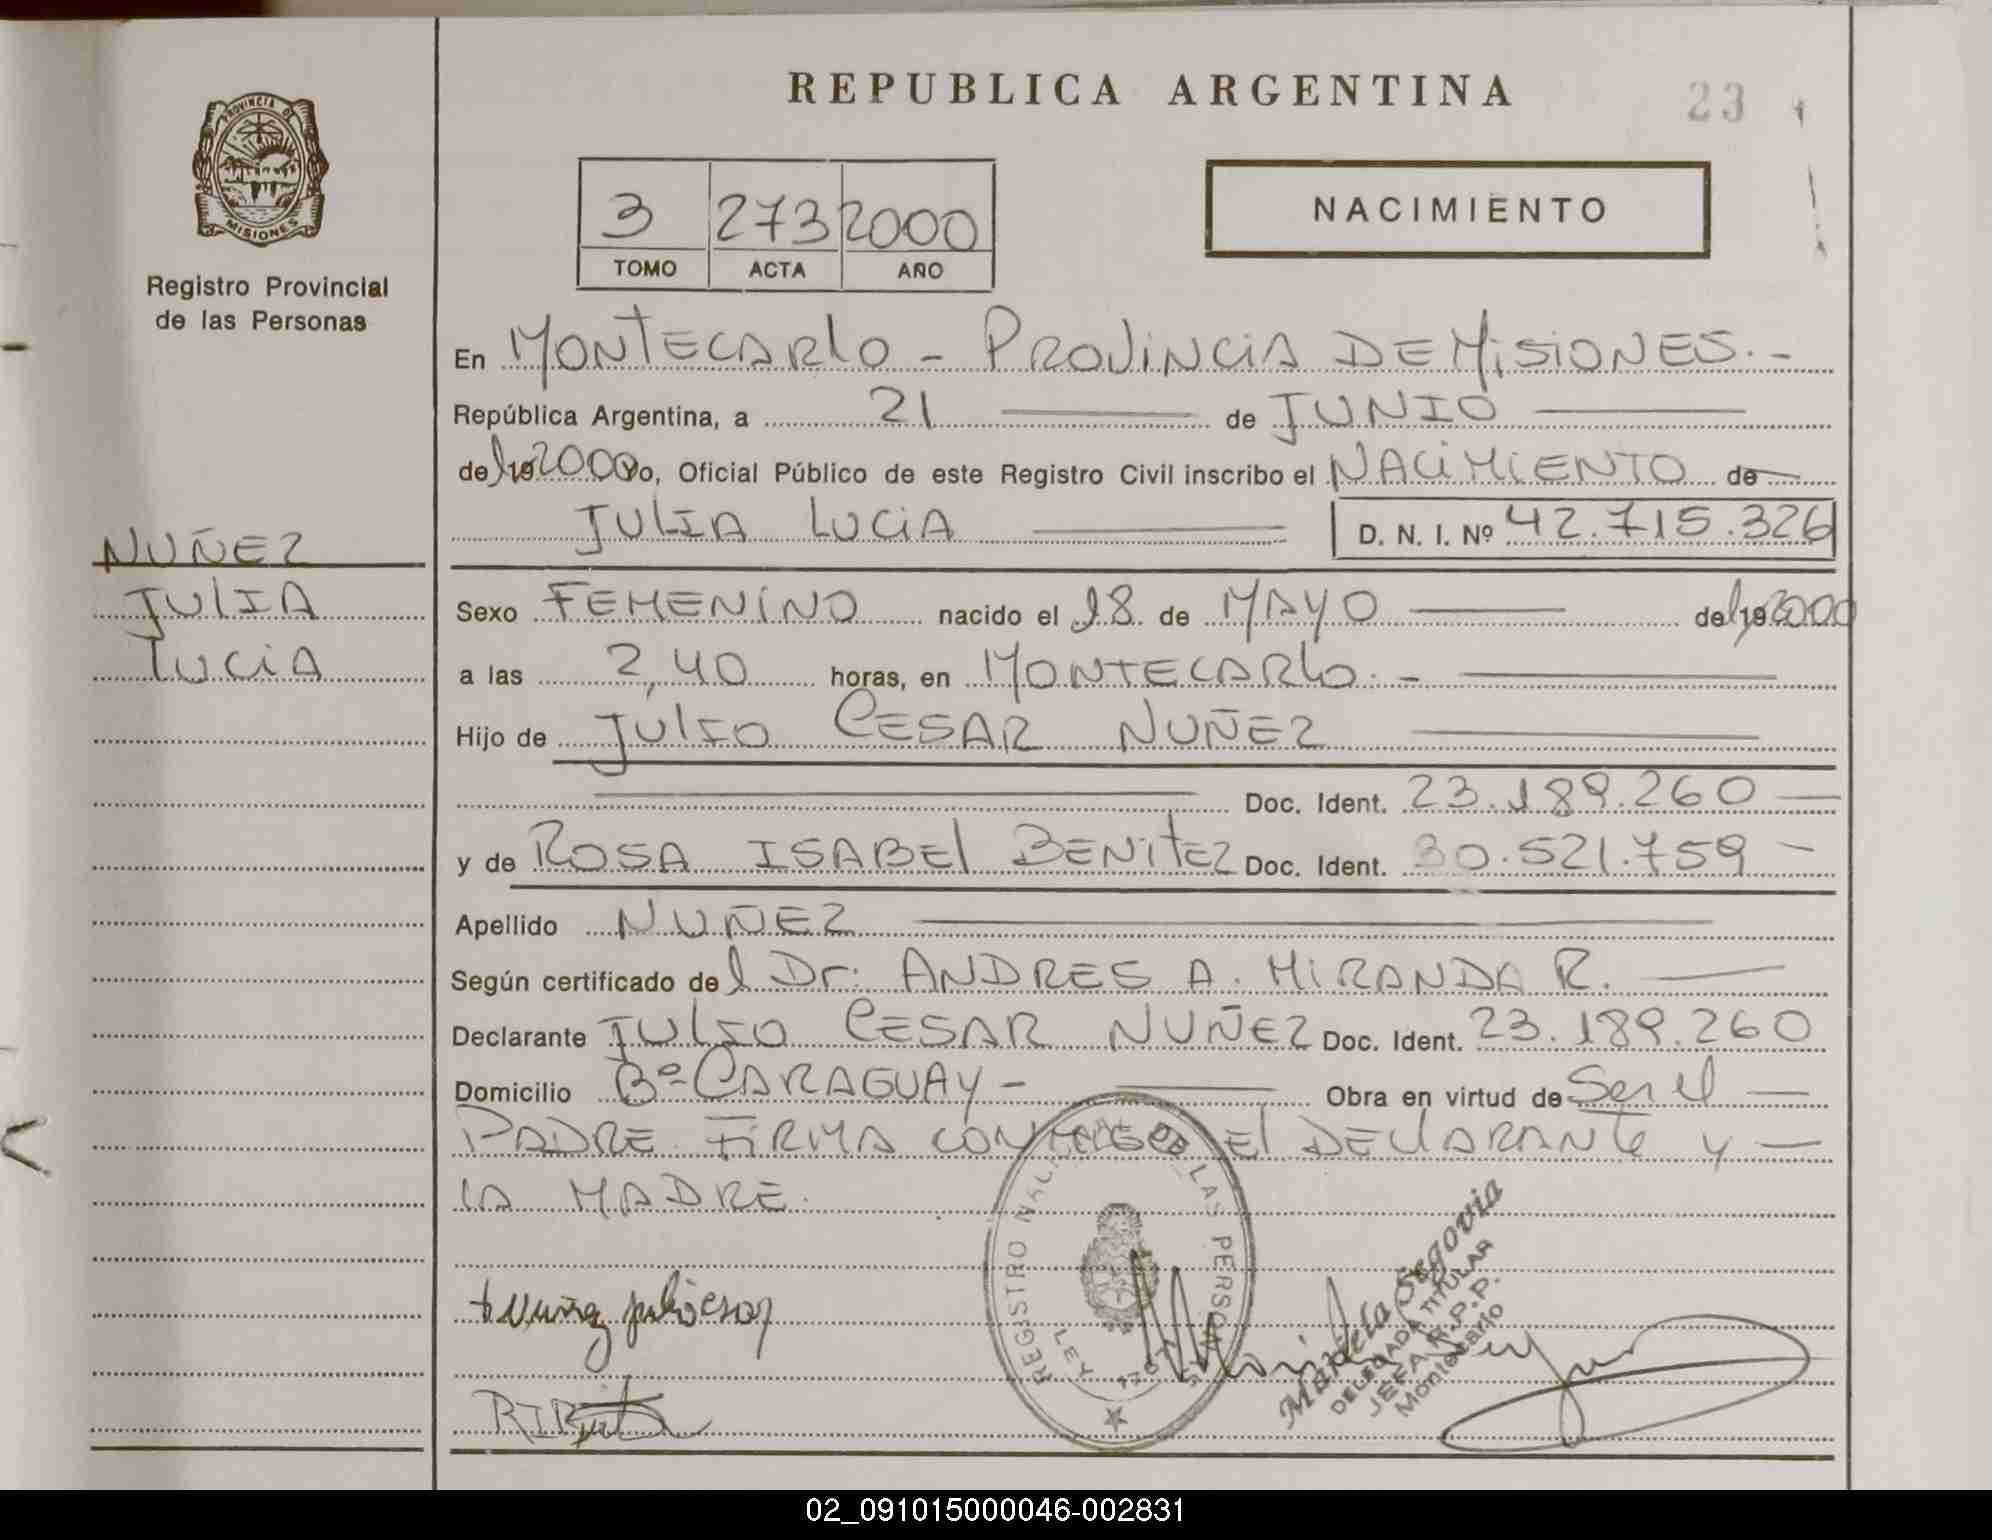 REPUBLICA ARGENTINA
23
PROVINCIA DE
MISIONES
Registro Provincial
de las Personas
3 273 2000
TOMO ACTA AÑO
NACIMIENTO
En MONTECARLO - PROVINCIA DE MISIONES. -
República Argentina, a 21 de JUNIO
del 19 2000 Yo, Oficial Público de este Registro Civil inscribo el NACIMIENTO de
JULIA LUCIA D. N. I. Nº 42.715.326
NUÑEZ
JULIA
LUCIA
Sexo FEMENINO nacido el 18 de MAYO del 19 2000
a las 2,40 horas, en MONTECARLO. -
Hijo de JULIO CESAR NUÑEZ
Doc. Ident. 23.189.260
y de ROSA ISABEL BENITEZ Doc. Ident. 30.521.759
Apellido NUÑEZ
Según certificado del Dr: ANDRES A. MIRANDA R.
Declarante JULIO CESAR NUÑEZ Doc. Ident. 23.189.260
Domicilio Bº CARAGUAY - Obra en virtud de Ser el
PADRE. FIRMA CONMIGO EL DECLARANTE y
LA MADRE.
REGISTRO NACIONAL DE LAS PERSONAS
LEY 17671
Mariela Segovia
DELEGADA TITULAR
JEFA R.P.P.
Montecarlo
Nuñez julio cesar
02_091015000046-002831